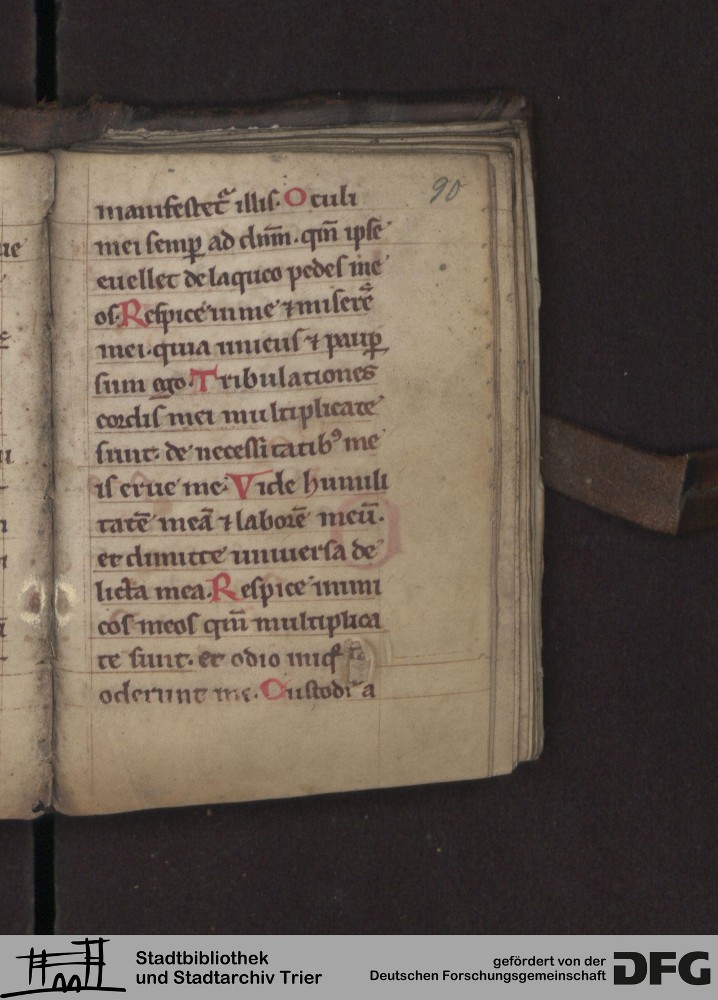 90
manifestet᷑ illis. Oculi
mei semꝑ ad dn̄m. qm̄ ipse
euellet de laqueo pedes me
os. Respice in me ⁊ miserẽ
mei. quia unicus ⁊ paup̱
sum ego. Tribulationes
cordis mei multiplicate
sunt. de necessitatibꝰ me
is erue me. Vide humili
tatē meā ⁊ laborē meū.
et dimitte uniuersa de
licta mea. Respice inimi
cos meos qm̄ multiplica
te sunt. et odio iniq
oderunt me. Custodi a
ue
Stadtbibliothek
und Stadtarchiv Trier
gefördert von der
Deutschen Forschungsgemeinschaft
DFG